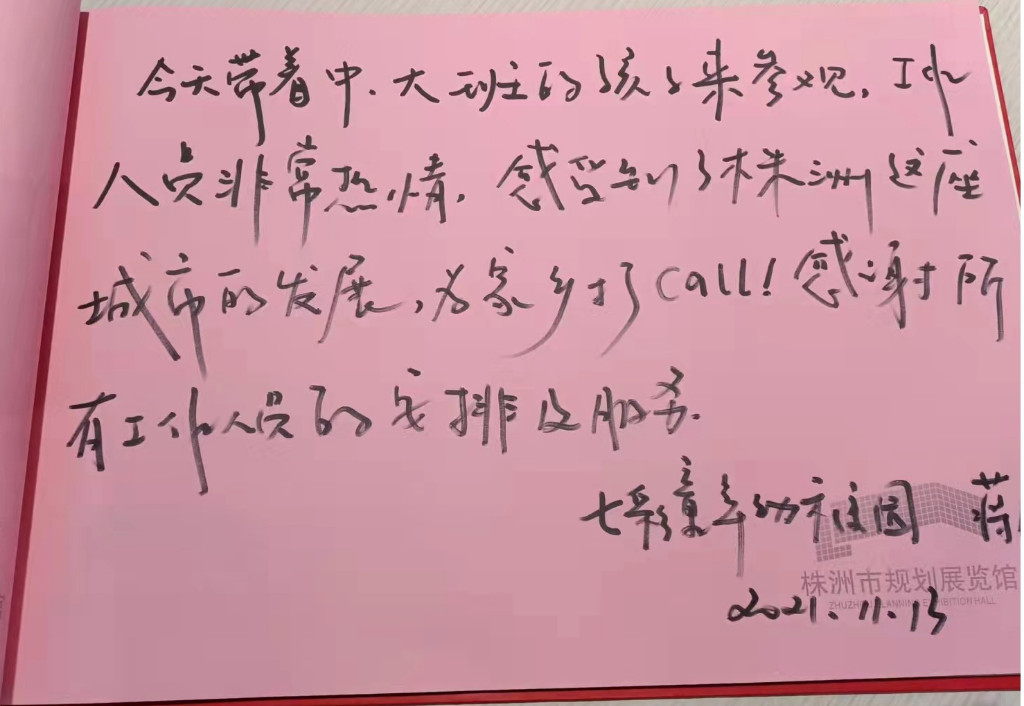 今天带着中、大班的孩子来参观,工作
人员非常热情,感受到了株洲这座
城市的发展,为家乡打call!感谢所
有工作人员的安排及服务.
七彩童年幼稚园 蒋
株洲市规划展览馆
ZHUZHOU PLANNING EXHIBITION HALL
2021.11.13